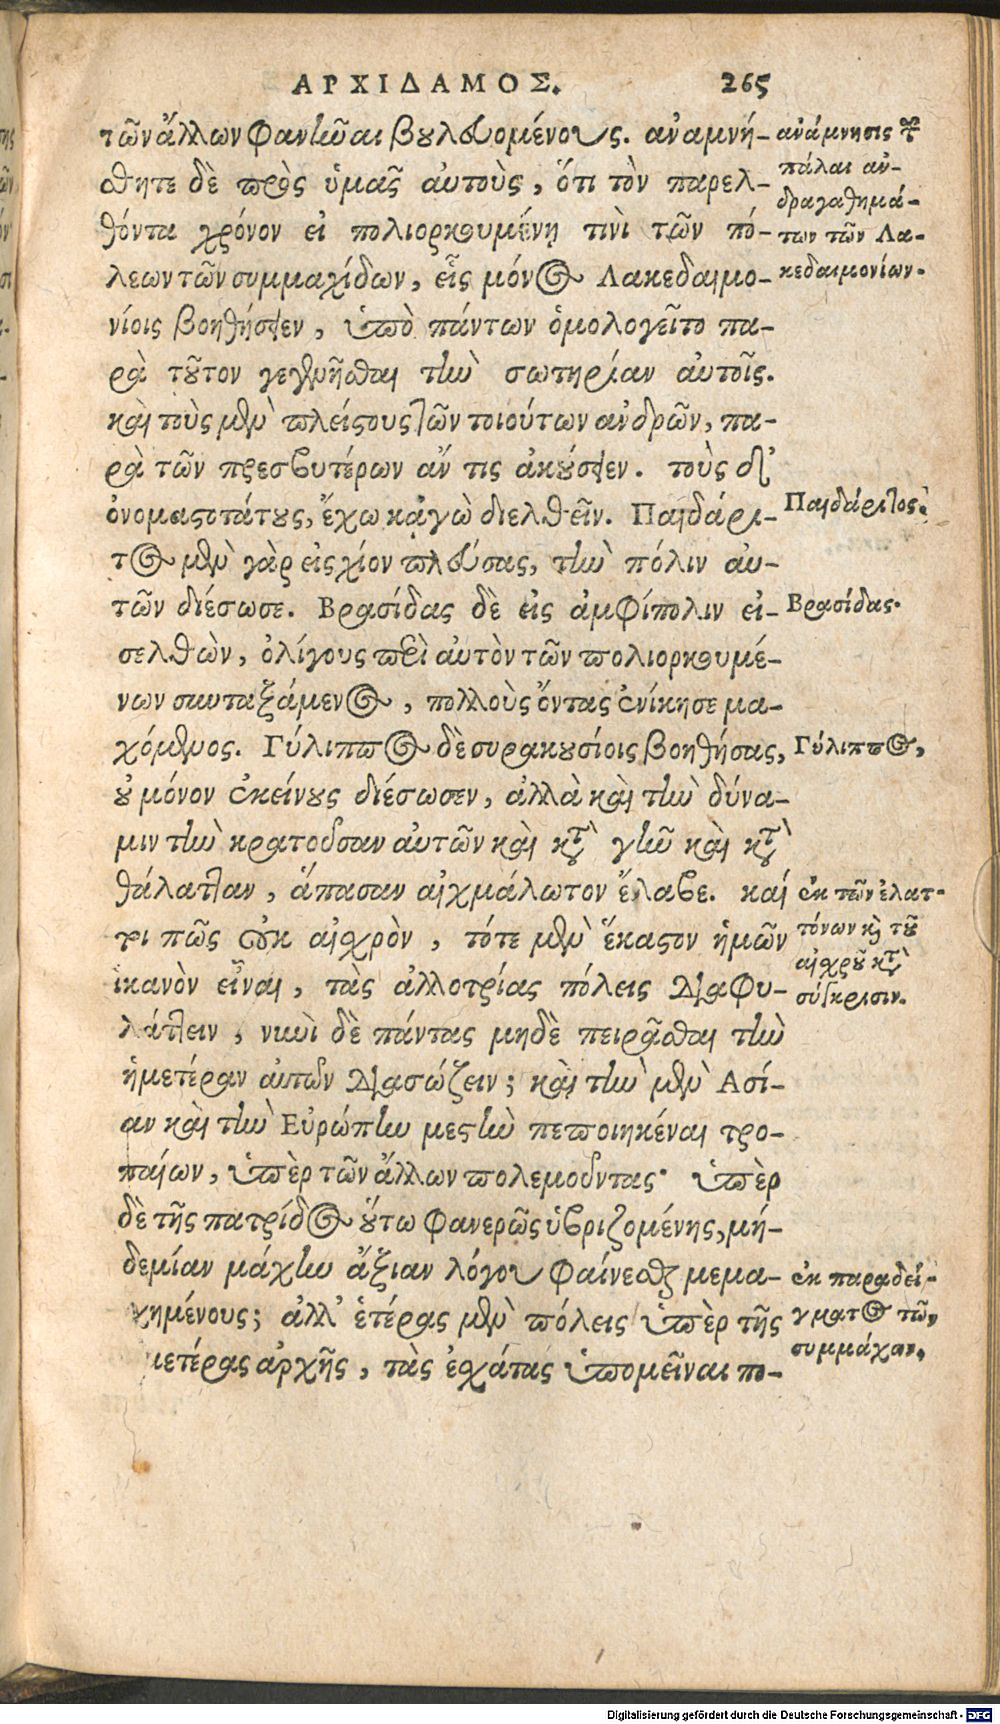 ΑΡΧΙΔΑΜΟΣ. 265
τῶν ἄλλων φανῆναι βουλευομένους. ἀναμνή-
σθητε δὲ πρὸς ὑμᾶς αὐτοὺς, ὅτι τὸν παρελ-
θόντα χρόνον εἰ πολιορκουμένῃ τινὶ τῶν πό-
λεων τῶν συμμαχίδων, εἷς μόνος Λακεδαιμο-
νίοις βοηθήσειεν, ὑπὸ πάντων ὁμολογεῖτο πα-
ρὰ τοῦτον γεγενῆσθαι τὴν σωτηρίαν αὐτοῖς.
καὶ τοὺς μὲν πλείστους τῶν τοιούτων ἀνδρῶν, πα-
ρὰ τῶν πρεσβυτέρων ἄν τις ἀκούσειεν. τοὺς δ'
ὀνομαστοτάτους, ἔχω κἀγὼ διελθεῖν. Παιδάρι-
τος μὲν γὰρ εἰς χίον πλεύσας, τὴν πόλιν αὐ-
τῶν διέσωσε. Βρασίδας δὲ εἰς ἀμφίπολιν εἰ-
σελθὼν, ὀλίγους περὶ αὐτὸν τῶν πολιορκουμέ-
νων συνταξάμενος, πολλοὺς ὄντας ἐνίκησε μα-
χόμενος. Γύλιππος δὲ συρακουσίοις βοηθήσας,
οὐ μόνον ἐκείνους διέσωσεν, ἀλλὰ καὶ τὴν δύνα-
μιν τὴν κρατοῦσαν αὐτῶν καὶ κατὰ γῆν καὶ κατὰ
θάλατταν, ἅπασαν αἰχμάλωτον ἔλαβε. καί
τοι πῶς οὐκ αἰσχρὸν, τότε μὲν ἕκαστον ἡμῶν
ἱκανὸν εἶναι, τὰς ἀλλοτρίας πόλεις διαφυ-
λάττειν, νυνὶ δὲ πάντας μηδὲ πειρᾶσθαι τὴν
ἡμετέραν αὐτῶν διασώζειν; καὶ τὴν μὲν Ἀσί-
αν καὶ τὴν Εὐρώπην μεστὴν πεποιηκέναι τρο-
παίων, ὑπὲρ τῶν ἄλλων πολεμοῦντας· ὑπὲρ
δὲ τῆς πατρίδος οὕτω φανερῶς ὑβριζομένης, μή-
δεμίαν μάχην ἄξιαν λόγου φαίνεσθαι μεμα-
χημένους; ἀλλ' ἑτέρας μὲν πόλεις ὑπὲρ τῆς
μετέρας ἀρχῆς, τὰς ἐσχάτας ὑπομεῖναι πο-
ἀνάμνησις τῶν
πάλαι ἀν-
δραγαθημά-
των τῶν Λα-
κεδαιμονίων.
Παιδάριτος.
Βρασίδας.
Γύλιππος,
ἐκ τῶν ἐλατ-
τόνων καὶ τοῦ
αἰσχροῦ κατὰ
σύγκρισιν.
ἐκ παραδεί-
γματος τῶν
συμμάχων.
Digitalisierung gefördert durch die Deutsche Forschungsgemeinschaft - DFG